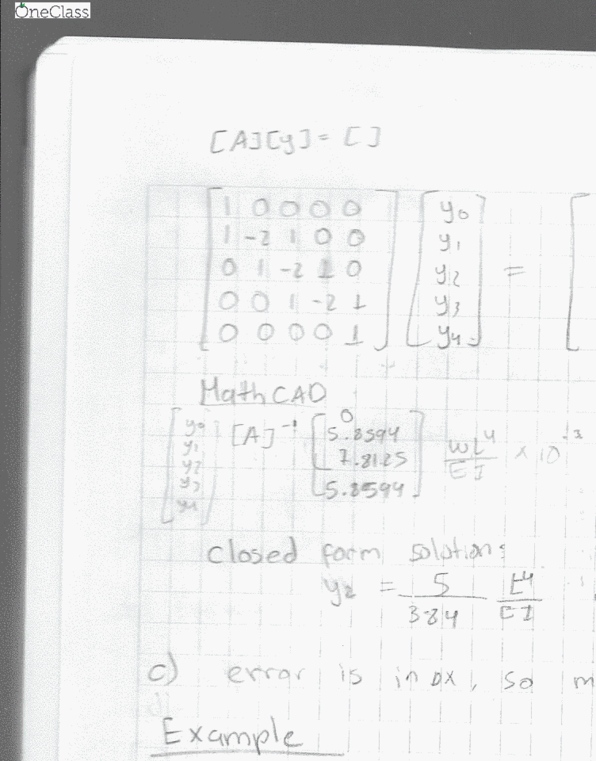 OneClass
[A][y] = [ ]
[1 0 0 0 0] [y0] [
[1 -2 1 0 0] [y1]
[0 1 -2 1 0] [y2] =
[0 0 1 -2 1] [y3]
[0 0 0 0 1] [y4]
MathCAD
[y0 y1 y2 y3 y4] [A]⁻¹ [0 5.8594 7.8125 5.8594] wL⁴/EI × 10⁻³
closed form solution:
y2 = 5/384 L⁴/EI
c) error is in DX, so m
Example